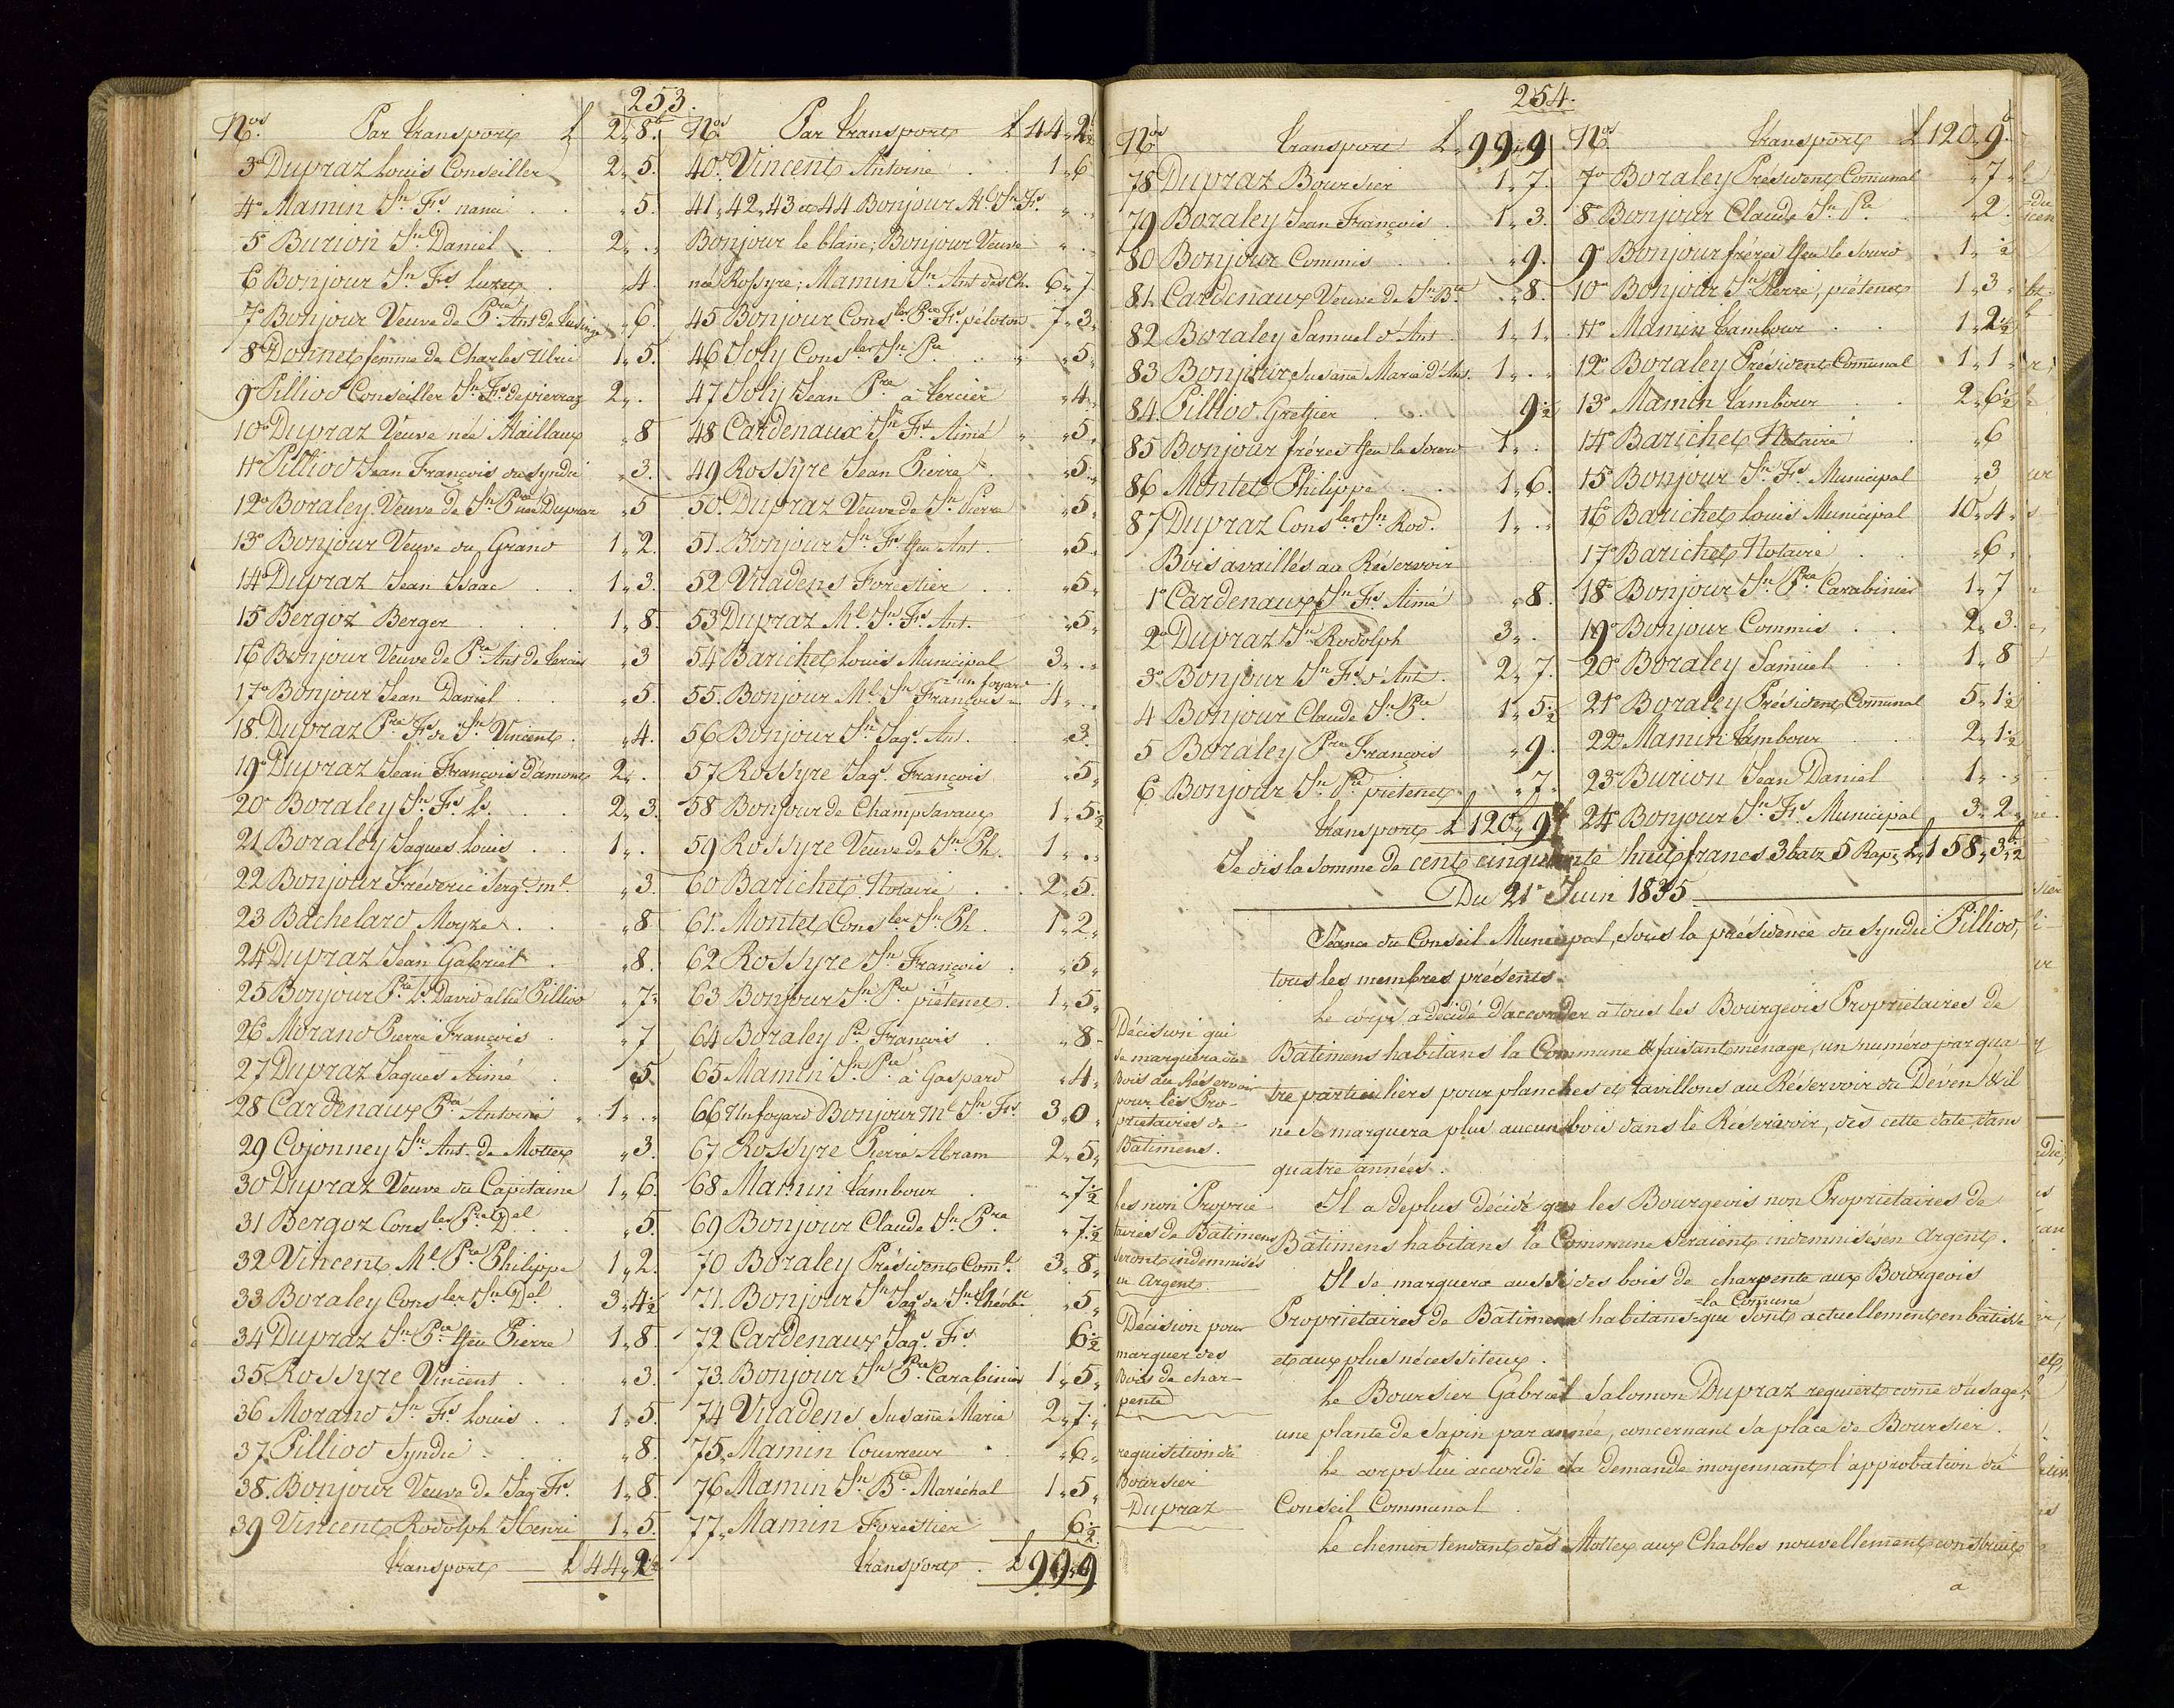 253.
Nos. Par transport L 2„8.
3° Dupraz Louis Conseiller 2„5.
4° Mamin Sn. Fs. nanci . . „5.
5° Burion Sn. Daniel . . 2„.„
6 Bonjour Sn. Fs. luzey . „4.
7° Bonjour Veuve de Pre. Ant. de „6.
8° Donnet femme de Charles Ulric 1„5.
9° Pilliod Conseiller Sn. Fs. depierraz 2„.
10° Dupraz Veuve née Maillaux „8
11° Pilliod Jean François du Syndic „3.
12° Boraley Veuve de Sn. Pre. née Dupraz „5
13° Bonjour Veuve du Grand 1„2.
14° Dupraz Jean Isaac . . 1„3.
15° Bergoz Berger . . . 1„8.
16 Bonjour Veuve de Pre. Ant. de tercier „3
17° Bonjour Jean Daniel . . „5.
18. Dupraz Pre. Fs. de Sn. Vincent . „4.
19° Dupraz Jean François d'amont 2„.
20° Boraley Sn. Fs. L. . . 2„3.
21 Boraley Jaques Louis . . 1„.
22 Bonjour Fréderic Sergt. ml. „3.
23 Bachelard Moyze . . „8
24 Dupraz Jean Gabriel . „8.
25 Bonjour Pre. Ls. David allié Pilliod „7„
26 Morand Pierre François . „7
27 Dupraz Jaques Aimé . „5
28 Cardenaux Pre. Antoine „ 1„.„
29 Cojonney Sn. Ant. de Mottex „3.
30 Dupraz Veuve du Capitaine 1„6.
31 Bergoz Consler. Pre. Del. . „5.
32 Vincent Ml. Pre. Philippe 1„2.
33 Boraley Consler. Sn. Del. . 3„4½
34 Dupraz Sn. Pre. ffeu Pierre 1„8.
35 Rossyre Vincent . . „3.
36 Morand Sn. Fs. Louis . . 1„5.
37. Pilliod Syndic . . „8.
38. Bonjour Veuve de Jaq. Fs. 1„8.
39 Vincent Rodolph Henri 1„5.
transport — L 44„2½
Nos. Par transport L 44„2½
40° Vincent Antoine . . 1„6
41„42„43 & 44 Bonjour Ml. Sn. Fs. „.„
Bonjour le blanc; Bonjour Veuve „.„
née Rossyre; Mamin Sn. Ant. des Ch. 6„7
45 Bonjour Consler. Pre. Fs. péloton 7„3„
46 Joly Consler. Sn. Pre. . . „ „5„
47 Joly Jean Pre. à tercier „4„
48 Cardenaux Sn. Fs. Aimé „ „5„
49 Rossyre Jean Pierre „5„
50. Dupraz Veuve de Sn. Pierre „5„
51. Bonjour Sn. Fs. ffeu Ant. „5„
52 Viladens Forestier . . „5„
53 Dupraz Ml. Sn. Fs. Ant. „5„
54 Barichet Louis Municipal 3„.„
55. Bonjour Ml. Sn. François =un foyard 4„.„
56 Bonjour Sn. Jaqs. Ant. . „3.
57 Rossyre Jaqs. François „5„
58 Bonjour de Champsavaux 1„5½
59 Rossyre Veuve de Sn. Ph. 1„.„
60 Barichet Notaire . . 2„5.
61. Montet Consler. Sn. Ph. . 1„2„
62 Rossyre Sn. François . „5„
63 Bonjour Sn. Pre. piétenet . 1„5„
64 Boraley Pre. François . „8„
65 Mamin Sn. Pre. à Gaspard „4„
66 Un foyard Bonjour ml. Sn. Fs. 3„0„
67 Rossyre Pierre Abram 2„5„
68 Mamin tambour . „7½
69 Bonjour Claude Sn. Pre. „7½
70 Boraley Président Coml. 3„8„
71. Bonjour Sn. Jaqs. de Sn. théobe. „5„
72 Cardenaux Jaqs. Fs. 6½
73. Bonjour Sn. Pre. Carabinier 1„5„
74 Viladens Susanne Marie 2„7„
75. Mamin Couvreur . „6„
76 Mamin Sn. Bte. Maréchal 1„5„
77„ Mamin Forestier 6½
transport . L 99„9
254.
Nos. transport L 99„9
78 Dupraz Boursier 1„7.
79 Boraley Jean François . 1„3.
80 Bonjour Commis . . „9.
81. Cardenaux Veuve de Sn. Bte. „8.
82 Boraley Samuel d'Ant . 1„1.
83 Bonjour Susanne Marie d'Ant. 1„.„
84 Pilliod Greffier . . 9½
85 Bonjour fréres ffeu le Sourd 1„.
86 Montet Philippe . . 1„6.
87 Dupraz Consler. Sn. Rod. 1„.„
Bois availlés au Réservoir
1° Cardenaux Sn. Fs. Aimé „8.
2° Dupraz Sn. Rodolph 3„.
3° Bonjour Sn. Fs. d'Ant. 2„7.
4 Bonjour Claude Sn. Pre. 1„5½
5 Boraley Pre. François „9.
6 Bonjour Sn. Pre. piétenet „7„
transport L 120„9½
Nos. transport L 120„9½
7° Boraley Président Comunal „7„
8° Bonjour Claude Sn. Pre. . „2.
9° Bonjour fréres ffeu le Sourd 1„½
10° Bonjour Sn. Pierre, piétenet 1„3„
11° Mamin tambour . . 1„2½
12° Boraley Président Comunal 1„1„
13° Mamin tambour . . 2„6½
14° Barichet Notaire . „6
15° Bonjour Sn. Fs. Municipal „3
16° Barichet Louis Municipal 10„4„
17° Barichet Notaire . . „6„
18° Bonjour Sn. Pre. Carabinier 1„7
19° Bonjour Commis . . 2„3.
20° Boraley Samuel . . 1„8
21° Boraley Président Comunal 5„1½
22° Mamin tambour . . 2„1½
23° Burion Jean Daniel 1„.„
24° Bonjour Sn. Fs. Municipal 3„2„
Je dis la somme de cent cinquante huit francs 3 batz 5 Raps. L 158„3½
Du 21e Juin 1835
Séance du Conseil Municipal, sous la présidence du Syndic Pilliod,
tous les membres présents.
Le corps a décidé d'accorder à tous les Bourgeois Propriétaires de
Bâtimens habitans la Commune & faisant ménage, un numéro par qua
tre particuliers pour planches et tavillons au Réservoir du Dévens & il
ne se marquera plus aucun bois dans le Réservoir, dès cette date, dans
quatre années.
Il a deplus décidé que les Bourgeois non Propriétaires de
Bâtimens habitans la Commune seraient indemnisés en Argent.
Il se marquera aussi des bois de charpente aux Bourgeois
Propriétaires de Bâtimens habitans =la Comune qui sont actuellement en bâtisse
et aux plus nécessiteux.
Le Boursier Gabriel Salomon Dupraz requiert come d'usage,
une plante de Sapin par année, concernant sa place de Boursier.
Le corps lui accorde sa demande moyennant l'approbation du
Conseil Communal.
Le chemin tendant des Mottex aux Chables nouvellement construit
a
Décision qui
se marquera du
Bois au Réservoir
pour les Pro-
priétaires de
Bâtimens.
les non Proprié
taires de Bâtimens
seront indemnisés
en Argent
Décision pour
marquer des
Bois de char-
pente
requisition du
Boursier
Dupraz